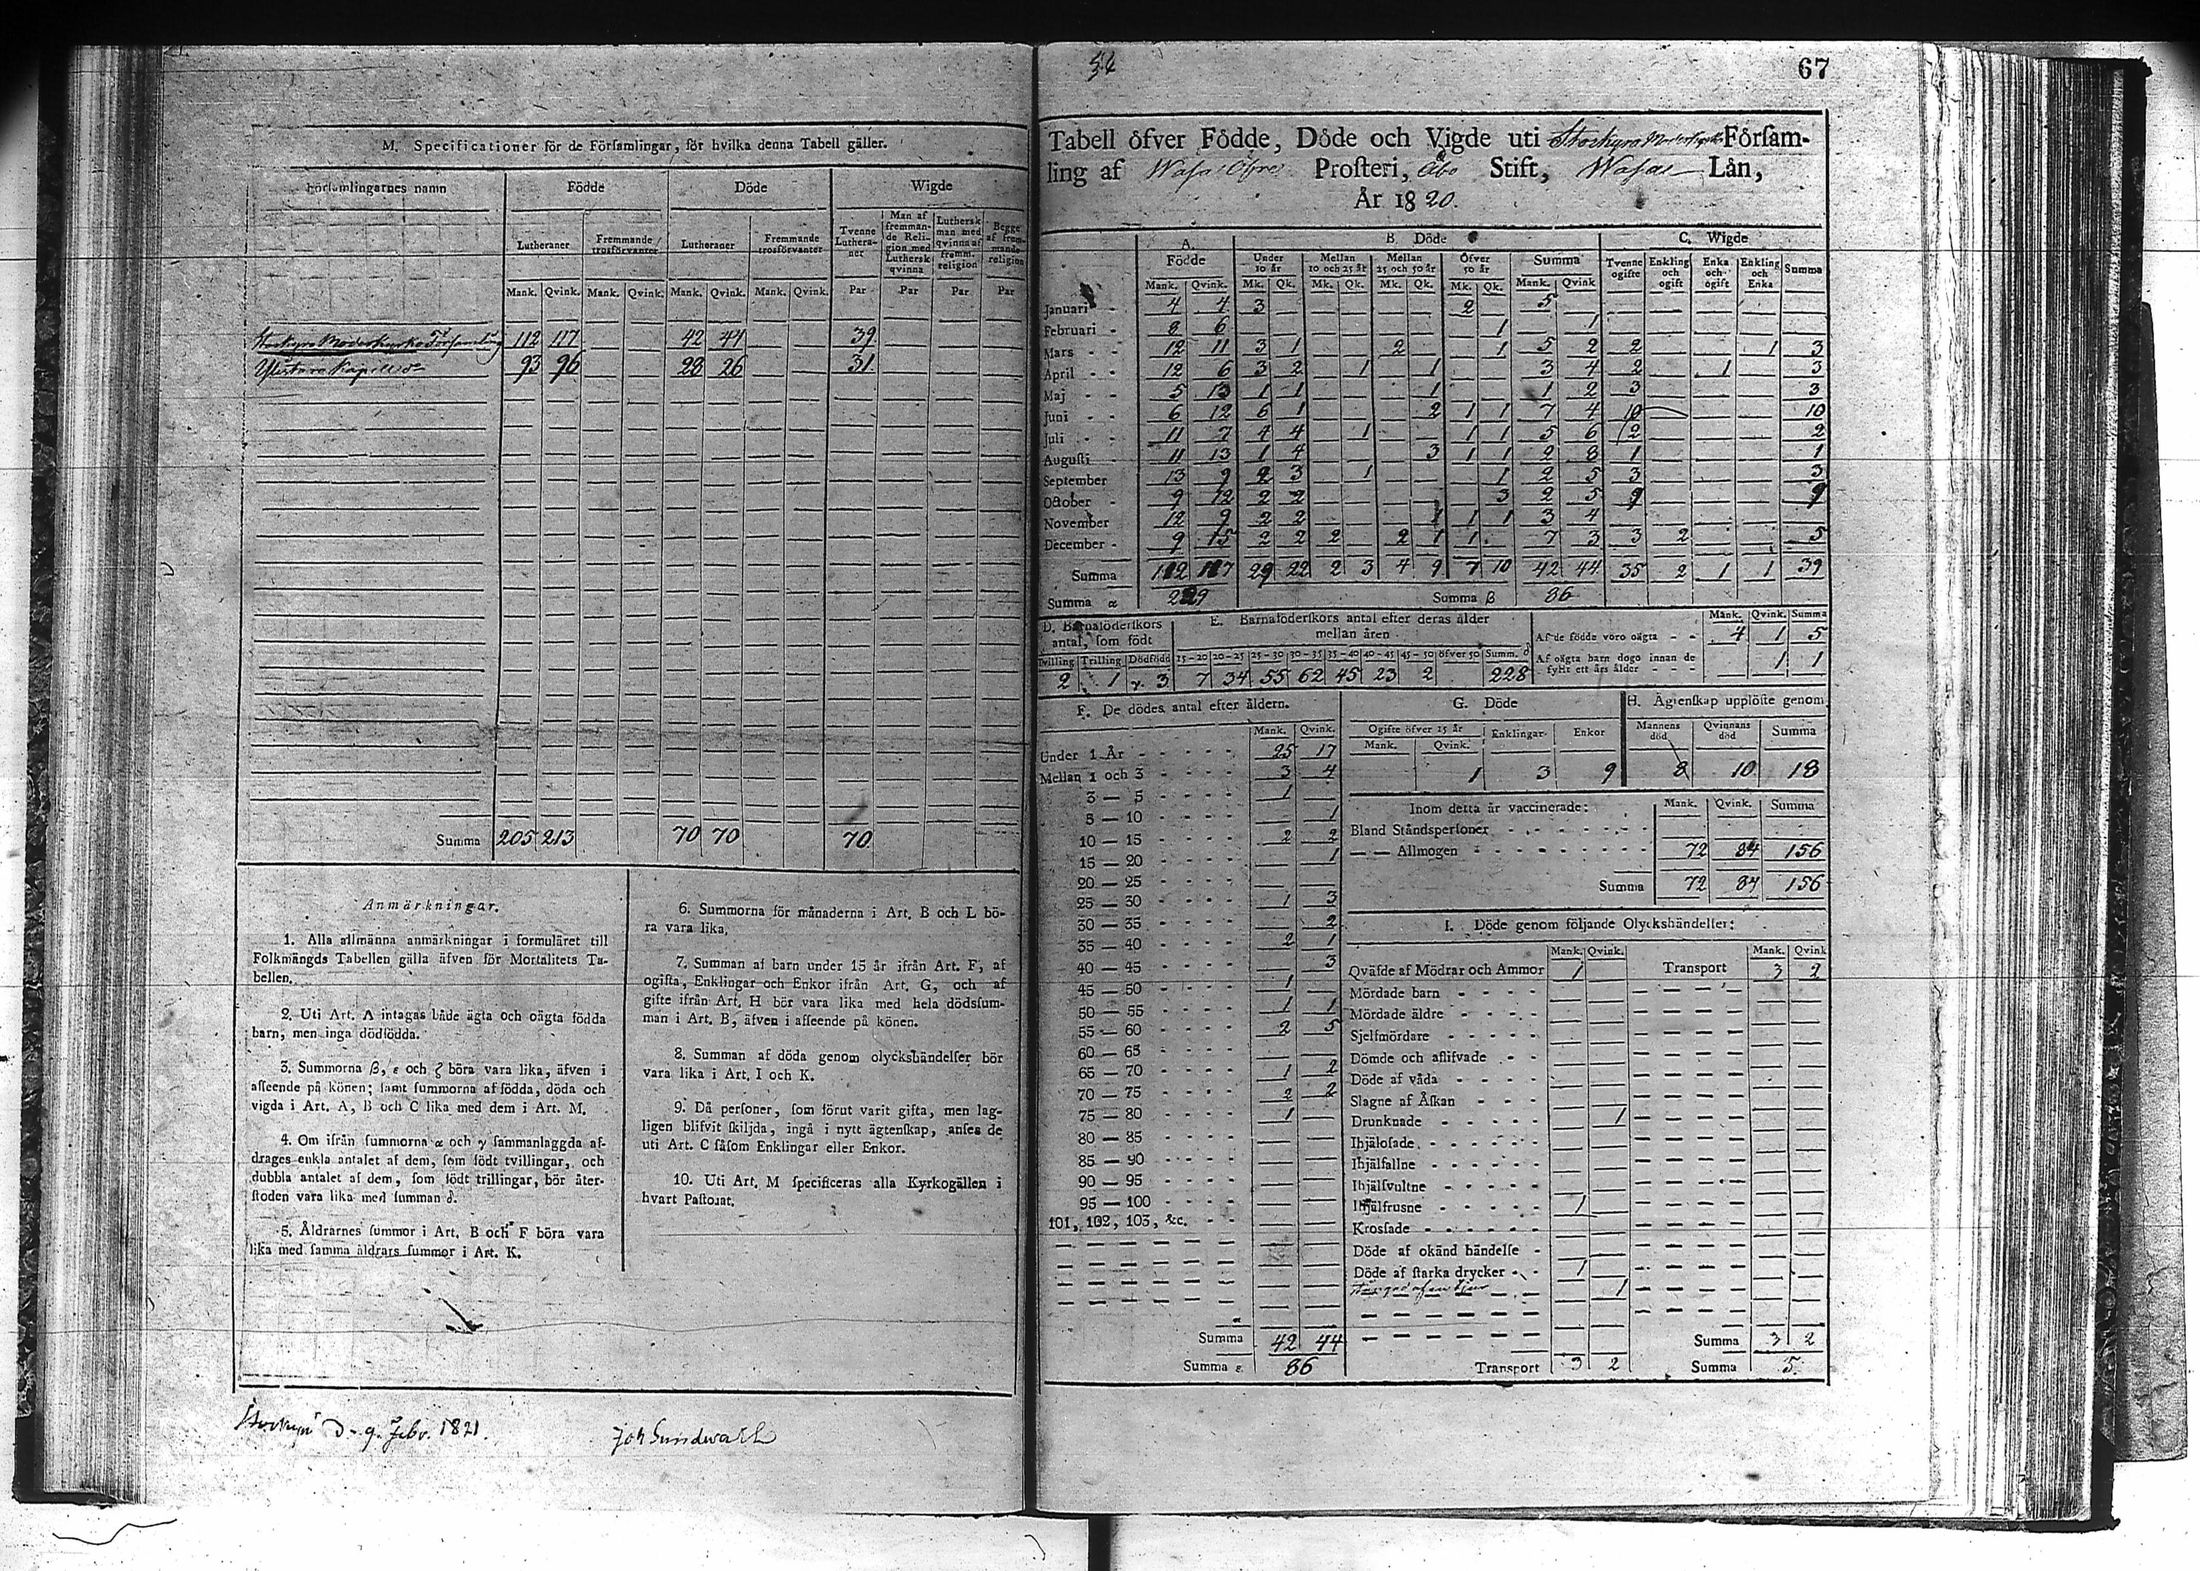 M. Specificationer för de Församlingar, för hvilka denna Tabell gäller.
Församlingarnes namn | Födde | Döde | Wigde
Lutheraner | Fremmande trosförvanter | Lutheraner | Fremmande trosförvanter | Tvenne Lutheraner | Man af fremmande Religion med Luthersk qvinna | Luthersk man med qvinna af fremm. religion | Begge af fremmande religion
Mank. | Qvink. | Mank. | Qvink. | Mank. | Qvink. | Mank. | Qvink. | Par | Par | Par | Par
Storkyro Moderkyrko Församling 112 117 — — 42 44 — — 39 — — —
Ylistaro Kapell 93 96 — — 28 26 — — 31 — — —
Summa 205 213 70 70 70
Anmärkningar.
1. Alla allmänna anmärkningar i formuläret till
Folkmängds Tabellen gälla äfven för Mortalitets Ta-
bellen.
2. Uti Art. A intagas både ägta och oägta födda
barn, men inga dödfödda.
3. Summorna β, ε och ζ böra vara lika, äfven i
afseende på könen; samt summorna af födda, döda och
vigda i Art. A, B och C lika med dem i Art. M.
4. Om ifrån summorna α och γ sammanlaggda af-
drages enkla antalet af dem, som födt tvillingar, och
dubbla antalet af dem, som födt trillingar, bör åter-
stoden vara lika med summan δ.
5. Åldrarnes summor i Art. B och F böra vara
lika med samma åldrars summor i Art. K.
6. Summorna för månaderna i Art. B och L bö-
ra vara lika.
7. Summan af barn under 15 år ifrån Art. F, af
ogifta, Enklingar och Enkor ifrån Art. G, och af
gifte ifrån Art. H bör vara lika med hela dödssum-
man i Art. B, äfven i afseende på könen.
8. Summan af döda genom olyckshändelser bör
vara lika i Art. I och K.
9. Då personer, som förut varit gifta, men lag-
ligen blifvit skiljda, ingå i nytt ägtenskap, anses de
uti Art. C såsom Enklingar eller Enkor.
10. Uti Art. M specificeras alla Kyrkogällen i
hvart Pastorat.
Storkyro D. 9. Febr. 1821.
Joh Sundwall
67
Tabell öfver Födde, Döde och Vigde uti Storkyro Moderkyrko Försam-
ling af Wasa Öfre Prosteri, Åbo Stift, Wasa Län,
År 1820.
A. Födde | B. Döde | C. Wigde
Under 10 år | Mellan 10 och 25 år | Mellan 25 och 50 år | Öfver 50 år | Summa | Tvenne ogifte | Enkling och ogift | Enka och ogift | Enkling och Enka | Summa
Mank. | Qvink. | Mk. | Qk. | Mk. | Qk. | Mk. | Qk. | Mk. | Qk. | Mank. | Qvink
Januari 4 4 3 — — — — — 2 — 5 —
Februari 8 6 — — — — — — — 1 — 1
Mars 12 11 3 1 — — 2 — — 1 5 2 2 — — 1 3
April 12 6 3 2 — 1 — 1 — — 3 4 2 — 1 — 3
Maj 5 13 1 1 — — — 1 — — 1 2 3 — — — 3
Juni 6 12 6 1 — — — 2 1 1 7 4 10 — — — 10
Juli 11 7 4 4 — 1 — — 1 1 5 6 2 — — — 2
Augusti 11 13 1 4 — — — 3 1 1 2 8 1 — — — 1
September 13 9 2 3 — 1 — — — 1 2 5 3 — — — 3
October 9 12 2 2 — — — — — 3 2 5 9 — — — 9
November 12 9 2 2 — — — 1 1 1 3 4 — — — — —
December 9 15 2 2 2 — 2 1 1 — 7 3 3 2 — — 5
Summa 112 117 29 22 2 3 4 9 7 10 42 44 35 2 1 1 39
Summa α 229 Summa β 86
D. Barnaföderskors antal, som födt
Tvilling | Trilling | Dödfödd
2 1 γ. 3
E. Barnaföderskors antal efter deras ålder mellan åren
15—20 | 20—25 | 25—30 | 30—35 | 35—40 | 40—45 | 45—50 | öfver 50 | Summ. δ
7 34 55 62 45 23 2 228
Mank. | Qvink. | Summa
Af de födde voro oägta - - 4 1 5
Af oägta barn dogo innan de fyllt ett års ålder - - 1 1
F. De dödes antal efter åldern.
Mank. | Qvink.
Under 1 År 25 17
Mellan 1 och 3 3 4
3 — 5 1 —
5 — 10 — 1
10 — 15 2 2
15 — 20 — 1
20 — 25 — —
25 — 30 1 3
30 — 35 — 2
35 — 40 2 1
40 — 45 — 3
45 — 50 1 —
50 — 55 1 1
55 — 60 2 5
60 — 65 — —
65 — 70 1 2
70 — 75 2 2
75 — 80 1 —
80 — 85 — —
85 — 90 — —
90 — 95 — —
95 — 100 — —
101, 102, 103, &c.
Summa 42 44
Summa ε. 86
G. Döde
Ogifte öfver 15 år | Enklingar | Enkor
Mank. | Qvink.
1 3 9
H. Ägtenskap upplöste genom
Mannens död | Qvinnans död | Summa
8 10 18
Inom detta år vaccinerade: Mank. | Qvink. | Summa
Bland Ståndspersoner — — —
— — Allmogen 72 84 156
Summa 72 84 156
I. Döde genom följande Olyckshändelser:
Mank. | Qvink. | Mank. | Qvink
Qväfde af Mödrar och Ammor 1 — Transport 3 2
Mördade barn
Mördade äldre
Sjelfmördare
Dömde och aflifvade
Döde af våda
Slagne af Åskan
Drunknade — 1
Ihjälosade
Ihjälfallne
Ihjälsvultne
Ihjälfrusne 1 —
Krossade
Döde af okänd händelse
Döde af starka drycker 1 —
Stångad af en tjur — 1
Summa 3 2
Transport 3 2 Summa 5.